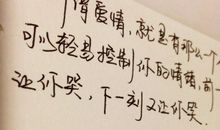 情爱情，就是有那么一个
可以轻易控制你的情绪，前一
让你哭，下一刻又让你笑.